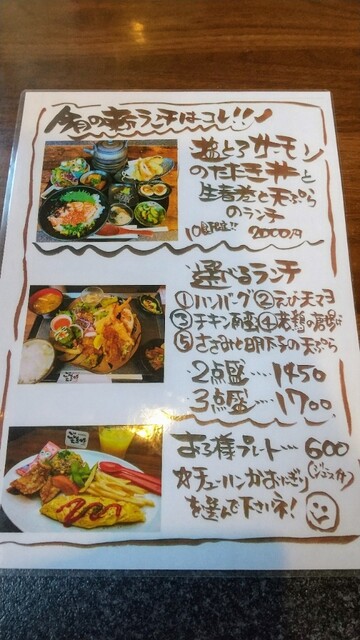 今日の新ランチはコレ!!
塩とろサーモン
の玉手丼と
生春巻と天ぷら
のランチ
10食限定!! 2000円
選べるランチ
①ハンバーグ ②えび天マヨ
③チキン南蛮 ④若鶏の唐揚げ
⑤ささみと明太子の天ぷら
2点盛…1450
3点盛…1700
お子様プレート…600
(ジュース付)
おにぎり
を選んで下さいネ!